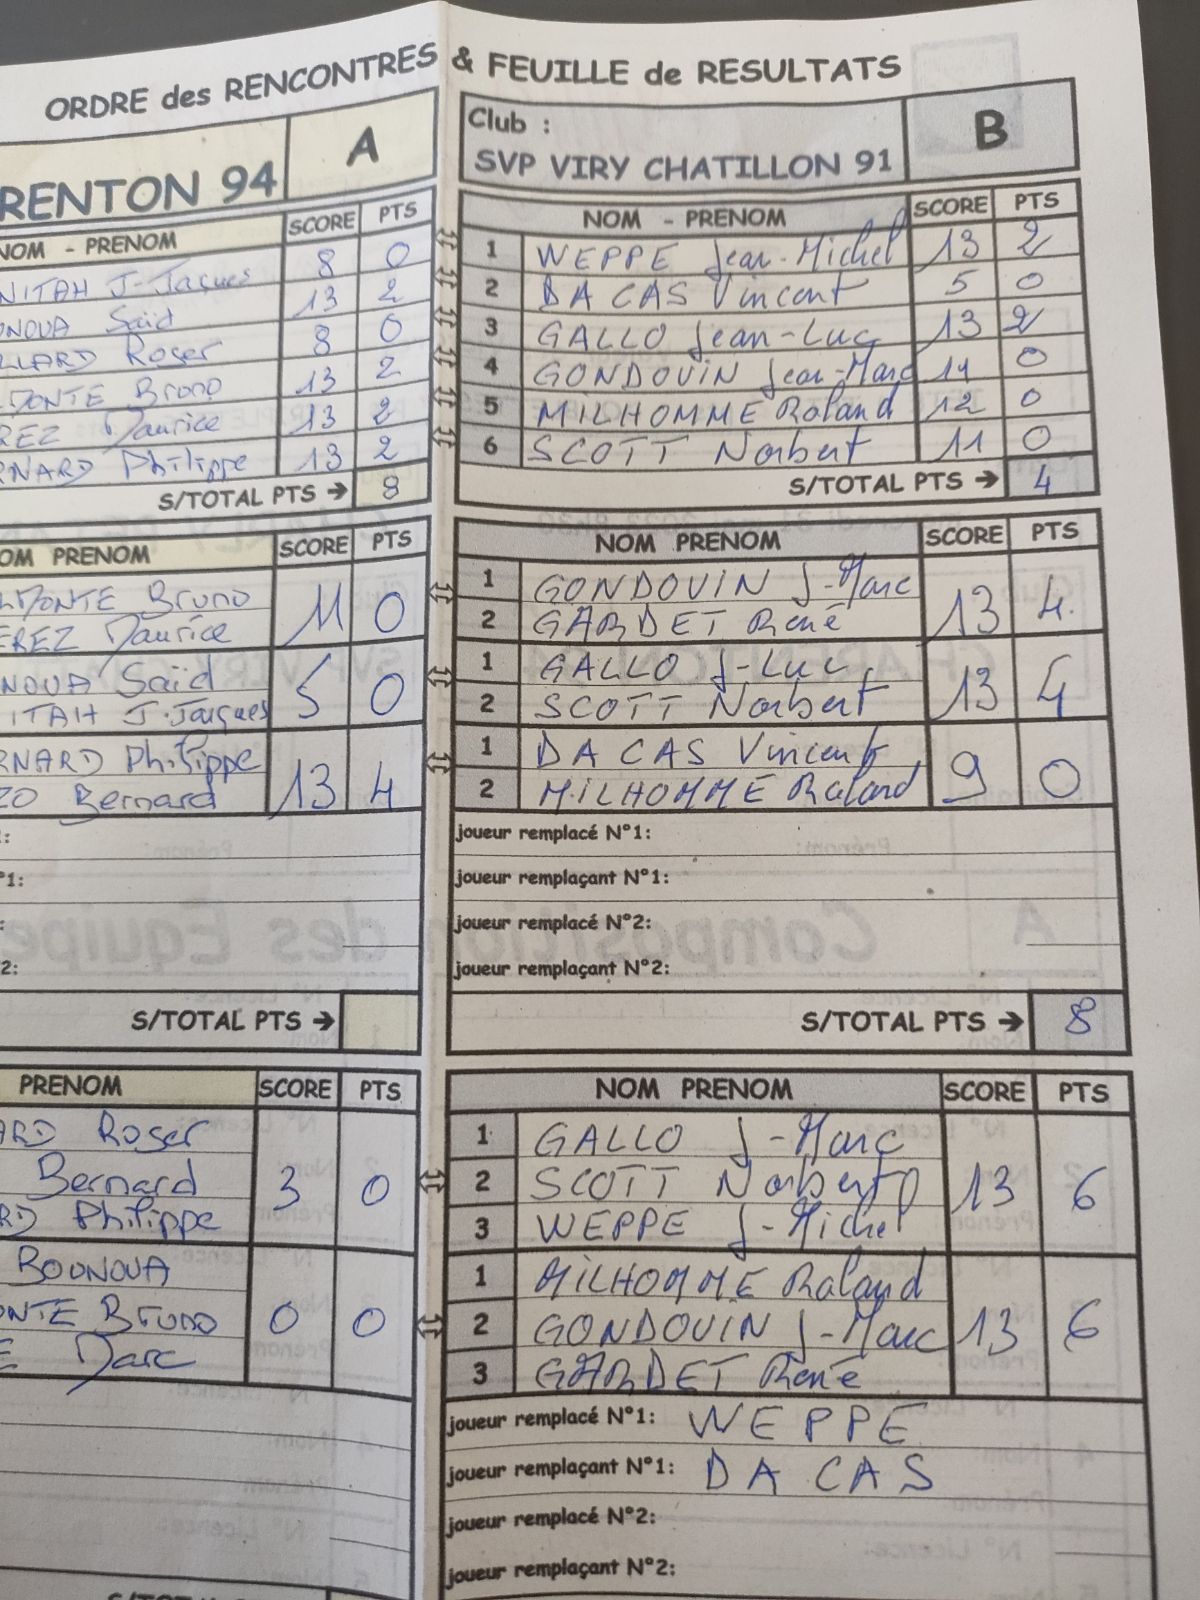 ORDRE des RENCONTRES & FEUILLE de RESULTATS
RENTON 94 A
NOM - PRENOM SCORE PTS
NITAH J-Jacques 8 0
ONOUA Saïd 13 2
LLARD Roger 8 0
MONTE Bruno 13 2
REZ Maurice 13 2
RNARD Philippe 13 2
S/TOTAL PTS → 8
OM PRENOM SCORE PTS
LMONTE Bruno
EREZ Maurice 11 0
NOUA Saïd
ITAH J-Jacques 5 0
RNARD Philippe
ZO Bernard 13 4
:
°1:
:
2:
S/TOTAL PTS →
PRENOM SCORE PTS
ARD Roger
Bernard 3 0
RD Philippe
BOUNOUA
ONTE Bruno 0 0
E Marc
Club :
SVP VIRY CHATILLON 91 B
NOM - PRENOM SCORE PTS
1 WEPPE Jean-Michel 13 2
2 DA CAS Vincent 5 0
3 GALLO Jean-Luc 13 2
4 GONDOUIN Jean-Marc 11 0
5 MILHOMME Roland 12 0
6 SCOTT Norbert 11 0
S/TOTAL PTS → 4
NOM PRENOM SCORE PTS
1 GONDOUIN J-Marc
2 GARDET René 13 4
1 GALLO J-Luc
2 SCOTT Norbert 13 4
1 DA CAS Vincent
2 MILHOMME Roland 9 0
joueur remplacé N°1:
joueur remplaçant N°1:
joueur remplacé N°2:
joueur remplaçant N°2:
S/TOTAL PTS → 8
NOM PRENOM SCORE PTS
1 GALLO J-Marc
2 SCOTT Norbert 13 6
3 WEPPE J-Michel
1 MILHOMME Roland
2 GONDOUIN J-Marc 13 6
3 GARDET René
joueur remplacé N°1: WEPPE
joueur remplaçant N°1: DA CAS
joueur remplacé N°2:
joueur remplaçant N°2: